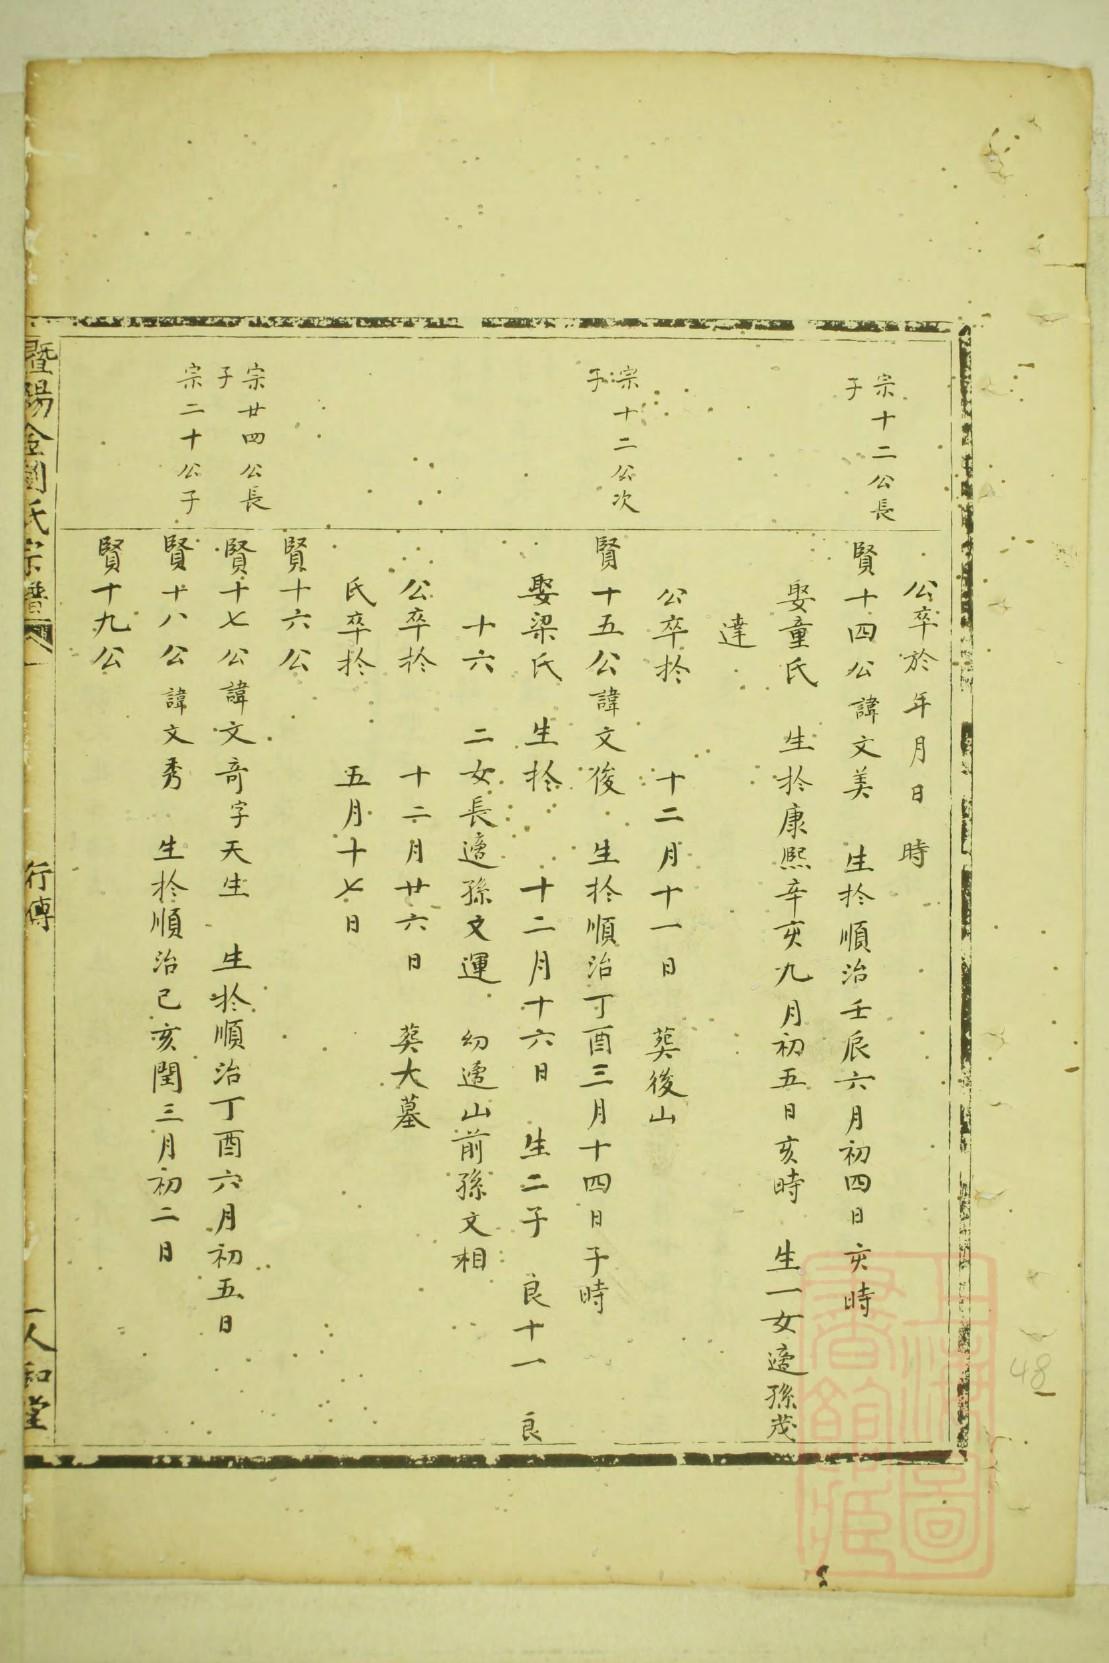 公卒於 年 月 日 時
宗十二公長
子
賢十四公諱文美 生於順治壬辰六月初四日亥時
娶童氏 生於康熙辛亥九月初五日亥時 生一女適孫茂
達
公卒於 十二月十一日 葬後山
宗十二公次
子
賢十五公諱文俊 生於順治丁酉三月十四日子時
娶梁氏 生於 十二月十六日 生二子 良十一 良
十六 二女長適孫文運 幼適山前孫文相
公卒於 十二月廿六日 葬大墓
氏卒於 五月十七日
賢十六公
宗廿四公長
子
賢十七公諱文奇字天生 生於順治丁酉六月初五日
宗二十公子
賢十八公諱文秀 生於順治己亥閏三月初二日
賢十九公
暨陽金澗氏宗譜
行傳
人和堂
上海圖
書館藏
48